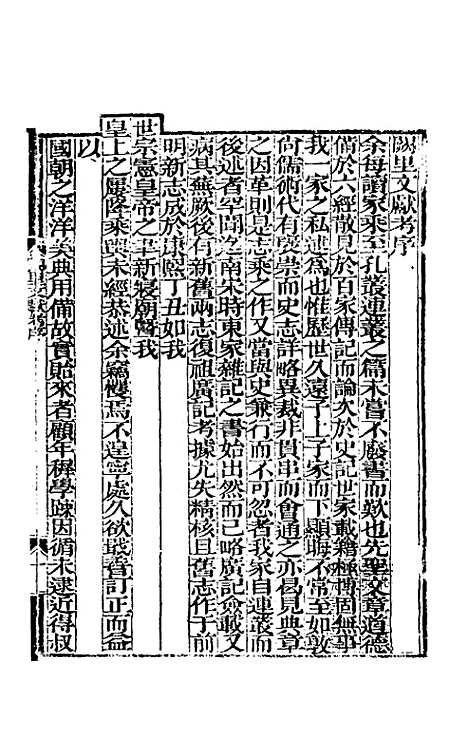 闕里文獻考序
余每讀家乘至孔叢連叢之篇未嘗不廢書而歎也先聖文章道德
備於六經散見於百家傳記而論次於史記世家載籍極博固無事
我一家之私述為也惟歷世久遠子上子家而下顯晦不常至如敦
尚儒術代有褒崇而史志詳略異裁非貫串而會通之亦曷見典章
之因革則是志乘之作又當與史兼行而不可忽者我家自連叢而
後述者罕聞迄南宋時東家雜記之書始出然而已略廣記僉載又
病其蕪厥後有新舊兩志復祖廣記考據尤失精核且舊志作于前
明新志成於康熙丁丑如我
世宗憲皇帝之聿新寢廟暨我
皇上之屢隆乘輿未經恭述余竊懼焉不遑寧處久欲哉書訂正而益
以
國朝之洋洋美典用備故實貽來者顧年穉學疎因循未逮近得叔